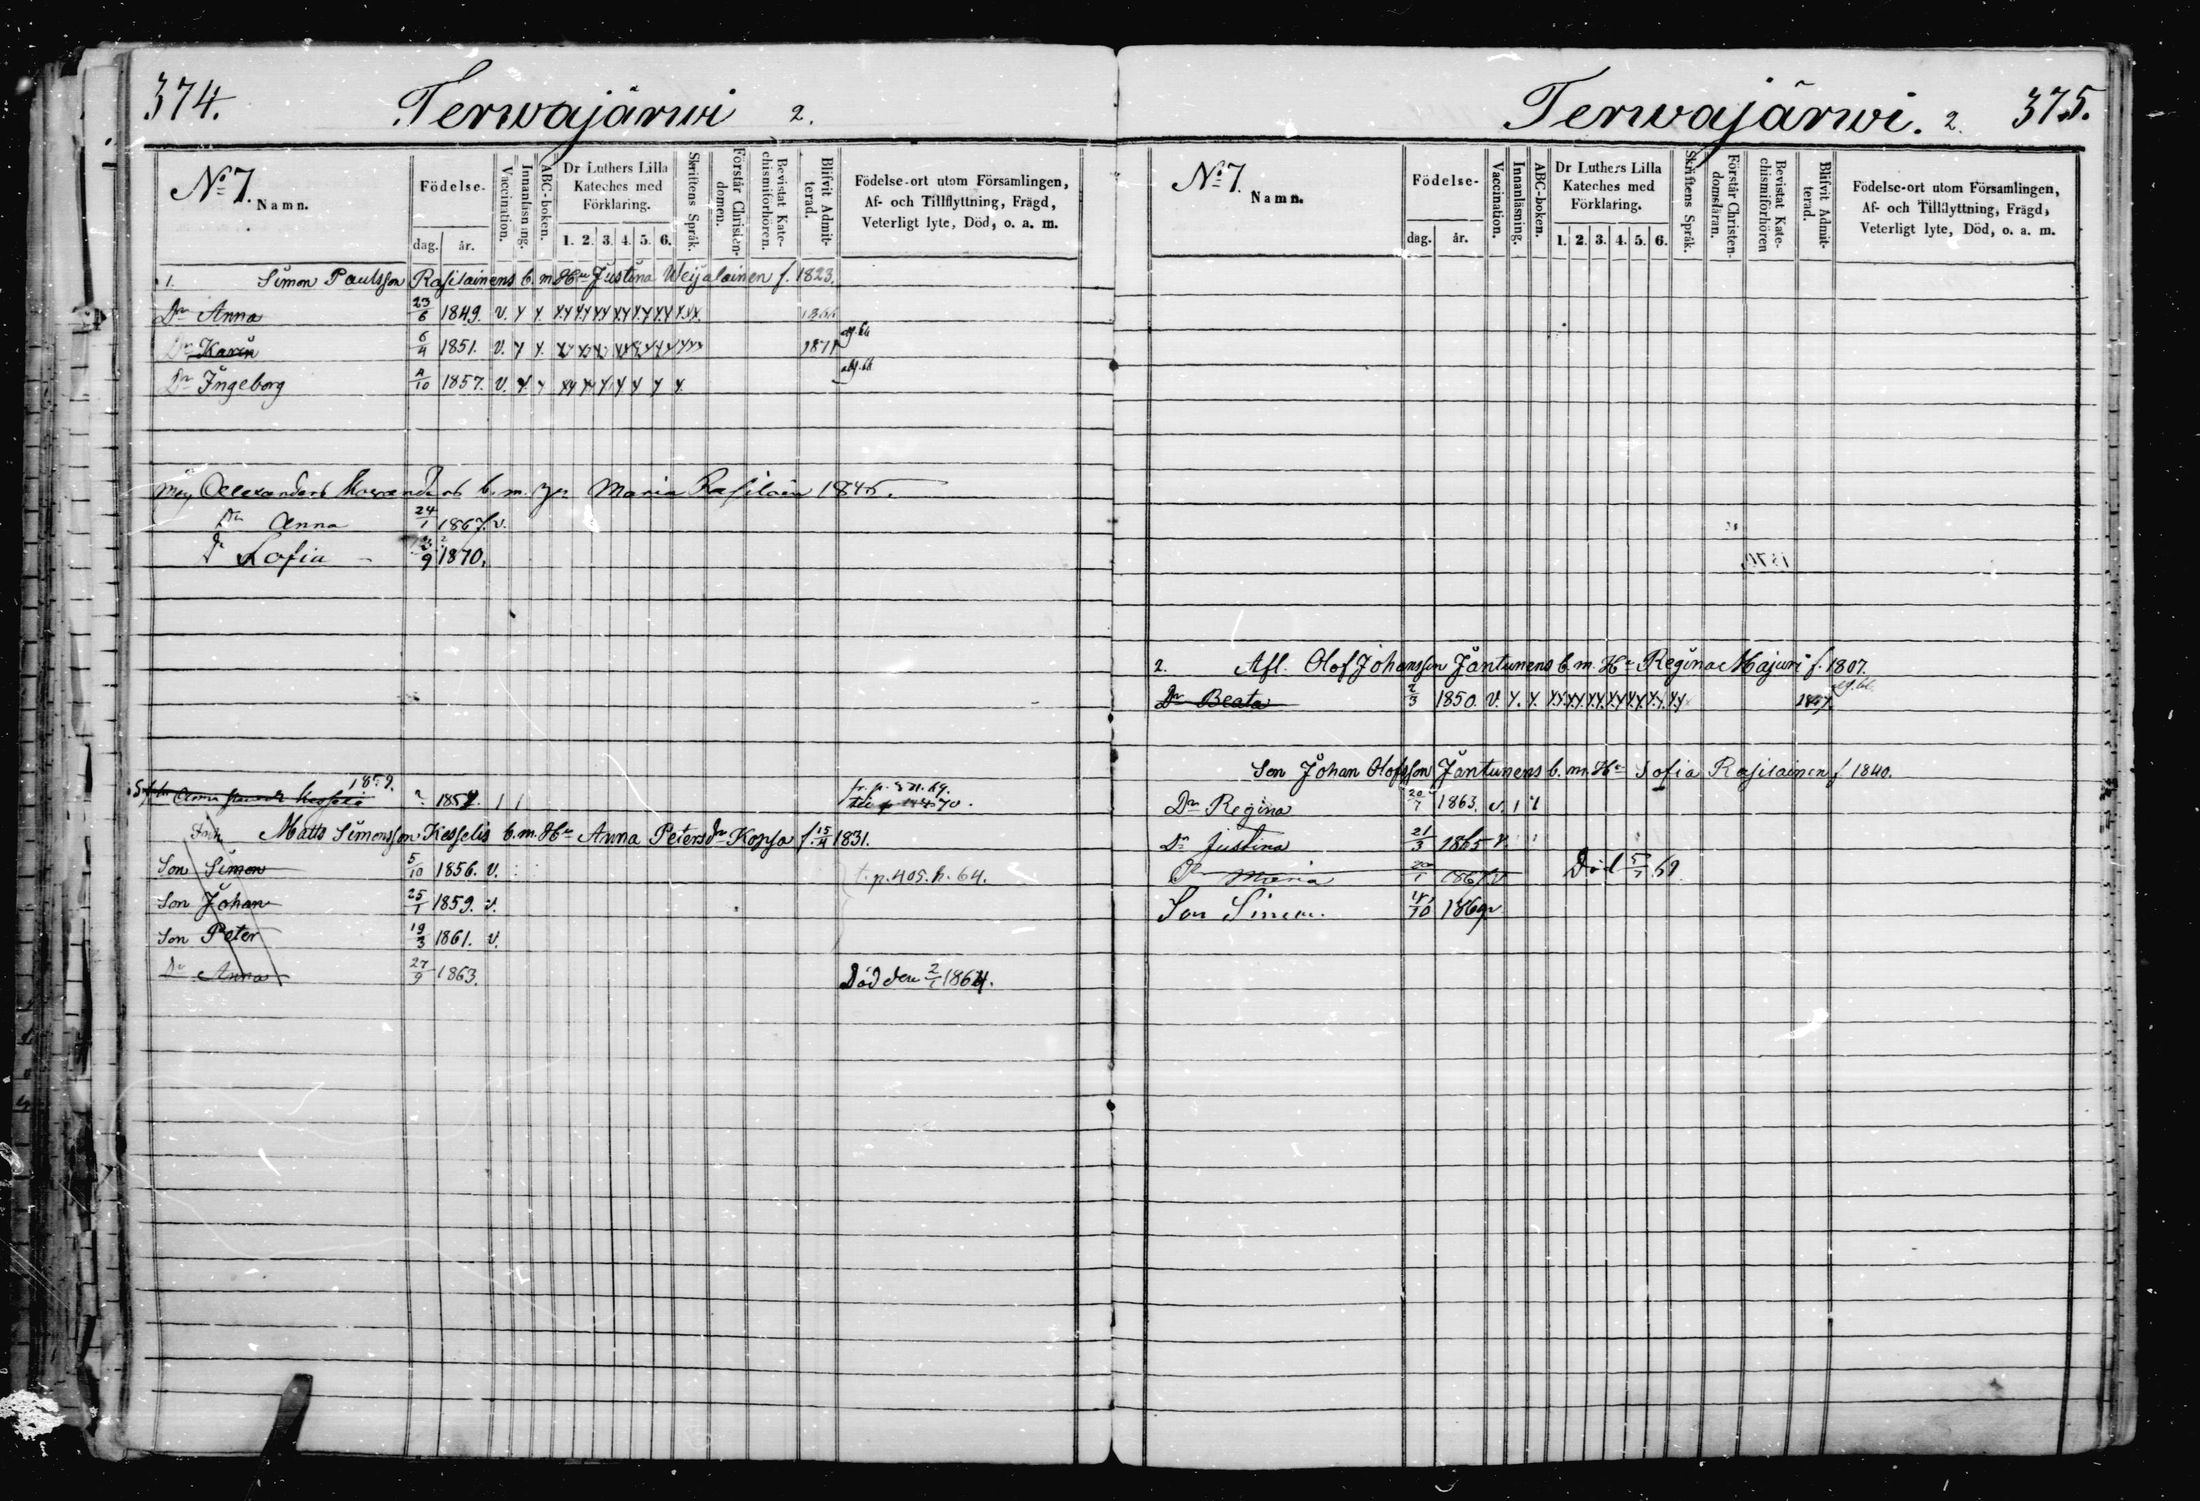 374.
Terwajärwi 2.
No 7. Namn.
Födelse-
dag. år.
Vaccination.
Innanläsning.
ABC-boken.
Dr Luthers Lilla Kateches med Förklaring.
1. 2. 3. 4. 5. 6.
Skriftens Språk.
Förstår Christendomen.
Bevistat Katechismiförhören.
Blifvit Admitterad.
Födelse-ort utom Församlingen,
Af- och Tillflyttning, Frägd,
Veterligt lyte, Död, o. a. m.
1. Simon Paulsson Rasilainens b. m. Hu Justina Weijalainen f. 1823.
Dr Anna 23/6 1849. v.
Dr Karin 6/4 1851. v. 1871
Dr Ingeborg 4/10 1857. v.
b. m. Maria 1845.
Dr Anna 24/1 1867. v.
Dr Sofia 9 1870.
1859.
Anna
Matts Simonsson Kesselis b. m. Hu Anna Petersdr Koppa f. 15/4 1831.
Son Simon 5/10 1856. v. t. p. 405. h. 64.
Son Johan 25/1 1859. v.
Son Peter 19/3 1861. v.
Dr Anna 27/9 1863. Död den 2/1 1864.
Terwajärwi. 2.
375.
No 7. Namn.
Födelse-
dag. år.
Vaccination.
Innanläsning.
ABC-boken.
Dr Luthers Lilla Kateches med Förklaring.
1. 2. 3. 4. 5. 6.
Skriftens Språk.
Förstår Christendomsläran.
Bevistat Katechismiförhören
Blifvit Admitterad.
Födelse-ort utom Församlingen,
Af- och Tillflyttning, Frägd,
Veterligt lyte, Död, o. a. m.
2. Afl. Olof Johansson Jäntunens b. m. Hu Regina Majuri f. 1807.
Dr Beata 2/3 1850. v.
Son Johan Olofsson Jäntunens b. m. Hu Sofia Rasilainen f 1840.
Dr Regina 20/7 1863. v.
Dr Justina 21/3 1865 v.
Dr Maria 1867 v Död 69.
Son Simon. 10 1869